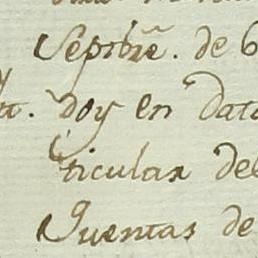 Sepbrẽ. de 6
doy en Data
ticular del
Quentas de